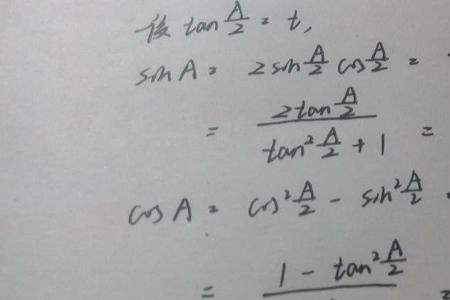 tan A/2 = t,
sin A = 2 sin A/2 cos A/2 =
= 2tan A/2 / (tan² A/2 + 1) =
cos A = cos² A/2 - sin² A/2
= 1 - tan² A/2